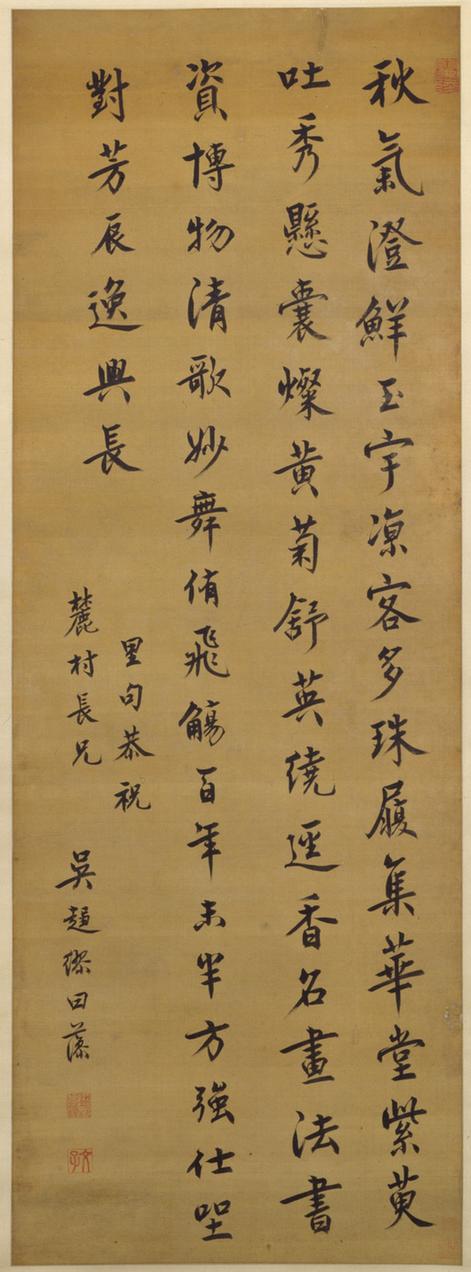 秋氣澄鮮玉宇涼客多珠履集華堂紫萸
吐秀懸囊燦黃菊舒英繞逕香名畫法書
資博物清歌妙舞侑飛觴百年未半方強仕堅
對芳辰逸興長
里句恭祝
麓村長兄
吳趨繆曰藻